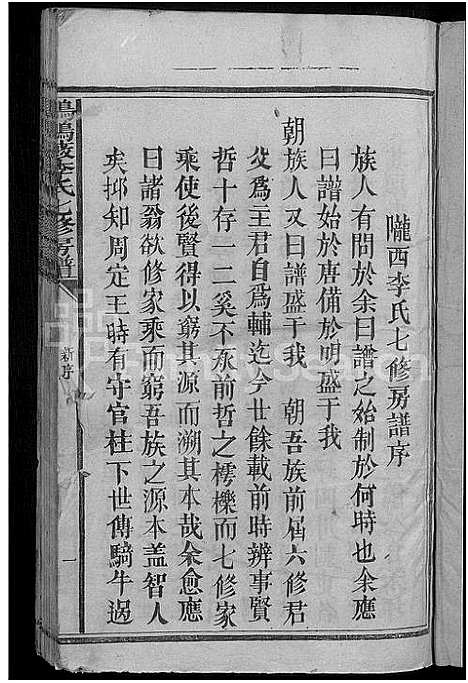 隴西李氏七修房譜序
族人有問於余曰譜之始制於何時也余應
曰譜始於唐備於明盛于我
朝族人又曰譜盛于我　朝吾族前屆六修君
父為王君自為輔迄今世餘載前時辨事賢
哲十存一二奚不承前哲之樗櫟而七修家
乘使後賢得以窮其源而溯其本哉余愈應
曰諸翁欲修家乘而窮吾族之源本盖智人
矣抑知周定王時有守官柱下世傳騎牛過
李氏七修房譜
新序
一